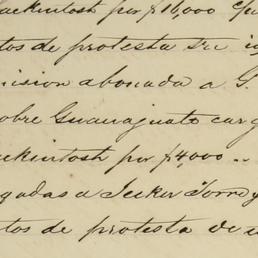 Mackintosh por $16,000
tos de protesta su
mision abonada a G.
sobre Guanajuato carg
ackintosh por $4,000..
gadas a Jecker Torre y
tos de protesta de